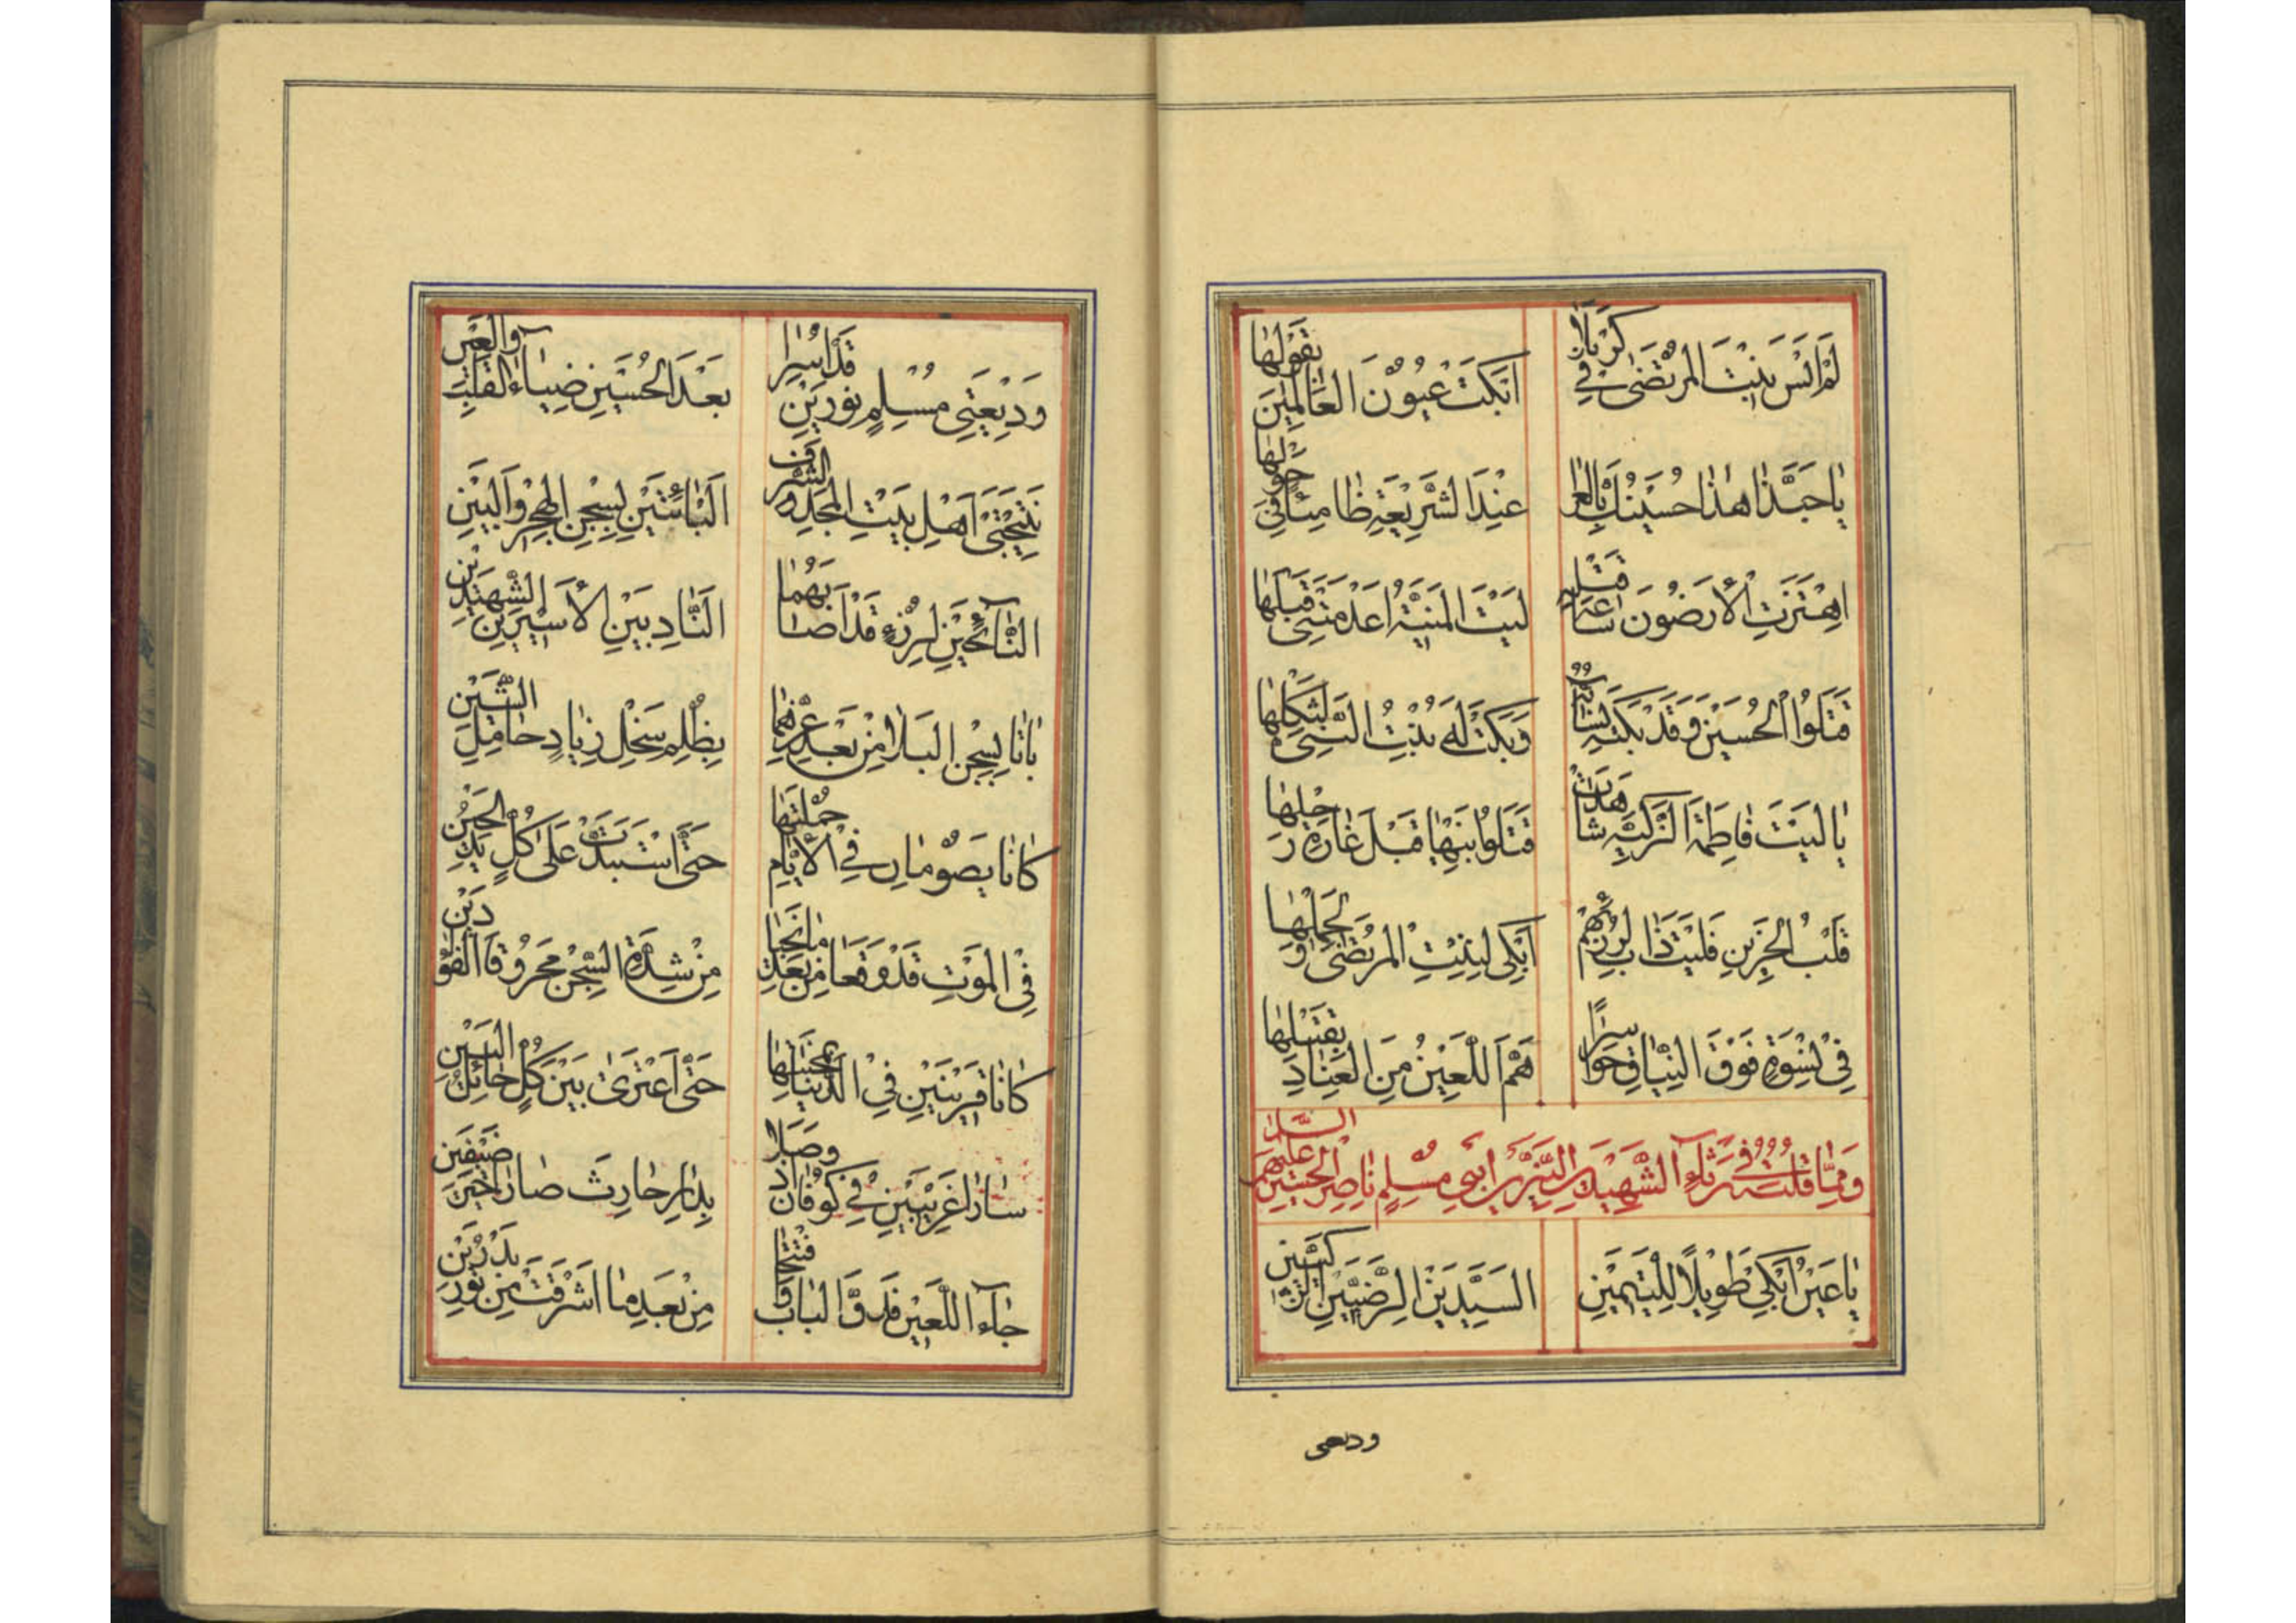 لَمْ اَنْسَ بِنْتَ الْمُرْتَضٰى فِي كَرْبَلَا اَبْكَتْ عُيُوْنَ الْعَالَمِيْنَ بِقَوْلِهَا
يَا حَبَّذَا هٰذَا حُسَيْنُكَ بِالْعَرٰا عِنْدَ الشَّرِيْعَةِ ظَامِئًا فِيْ حَوْلِهَا
اِهْتَزَّتِ الْاَرَضُونَ سَاعَةَ قَتْلِهِ لَيْتَ الْمَنِيَّةُ اَعْدَمَتْنِيْ قَبْلَهَا
قَتَلُوا الْحُسَيْنَ وَقَدْ بَكَتْهُ نِسَائُهُ وَبَكَتْ لَهُ بِنْتُ النَّبِيِّ لِثُكْلِهَا
يَا لَيْتَ فَاطِمَةَ الزَّكِيَّةِ شَاهَدَتْ قَتَلُوا بَنِيْهَا قَبْلَ غَارَةِ رَحْلِهَا
قَلْبُ الْحَزِيْنِ فَلَيْتَ ذَابَ لِرُزْئِهِمْ اَبْكِي لِبِنْتِ الْمُرْتَضٰى وَلِحَمْلِهَا
فِيْ نِسْوَةٍ فَوْقَ النِّيَاقِ حَوَاسِرًا هَمَّ اللَّعِيْنُ مِنَ الْعِنَادِ بِقَتْلِهَا
وَمِمَّا قُلْتُهُ فِي رَثَاءِ الشَّهِيْدَيْنِ النَّيِّرَيْنِ ابْنَيْ مُسْلِمٍ نَاصِرِ الْحُسَيْنِ عَلَيْهِمُ السَّلَام
يَا عَيْنُ اَبْكِيْ طَوِيْلًا لِلْيَتِيْمَيْنِ السَّيِّدَيْنِ الرَّضِيَّيْنِ الزَّكِيَّيْنِ
وديعتى
وَدِيْعَتَيْ مُسْلِمٍ نُورَيْنِ قَدْ اُسِرَا بَعْدَ الْحُسَيْنِ ضِيَاءِ الْقَلْبِ وَالْعَيْنِ
نَتِيْجَتَيْ اَهْلِ بَيْتِ الْمَجْدِ وَالشَّرَفِ الْبَائِتَيْنِ بِسِجْنِ الْهَجْرِ وَالْبَيْنِ
النَّائِحَيْنِ لِرُزْءٍ قَدْ اَصَابَهُمَا النَّادِبَيْنِ الْاَسِيْرَيْنِ الشَّهِيْدَيْنِ
بَاتَا بِسِجْنِ الْبَلَا مِنْ بَعْدِ عِزِّهِمَا بِظُلْمِ سَخْلِ زِيَادٍ حَامِلِ الشَّيْنِ
كَانَا يَصُوْمَانِ فِي الْاَيَّامِ جُمْلَتِهَا حَتَّى اسْتَبَدَّتْ عَلٰى كُلٍّ يَدُ الْحَيْنِ
فِي الْمَوْتِ قَدْ وَقَعَا مِنْ بَعْدِ مَا نَجَيَا مِنْ شِدَّةِ السِّجْنِ مَحْرُوقَا الْفُؤَادَيْنِ
كَانَا قَرِيْنَيْنِ فِي الدُّنْيَا بِمِحْنَتِهَا حَتَّى اعْتَرٰى بَيْنَ كُلٍّ حَائِلُ الْبَيْنِ
سَارَا غَرِيْبَيْنِ فِي كُوْفَانَ اِذْ وَصَلَا بِدَارِ حَارِثَ صَارَا خَيْرَ ضَيْفَيْنِ
جَاءَ اللَّعِيْنُ فَدَقَّ الْبَابَ مِنْ بَعْدِ مَا اَشْرَقَتْ مِنْ نُوْرِ بَدْرَيْنِ